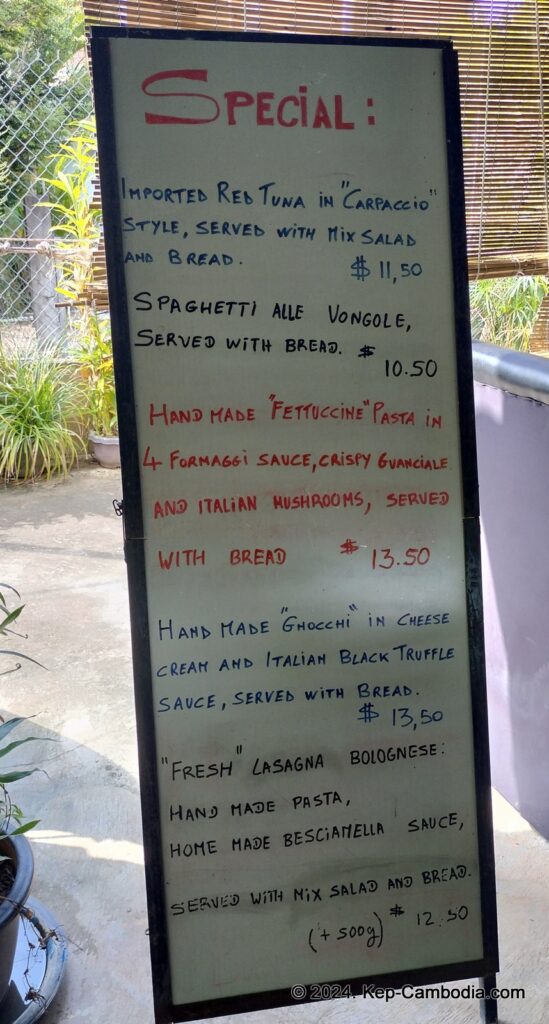 SPECIAL:
IMPORTED RED TUNA IN "CARPACCIO"
STYLE, SERVED WITH MIX SALAD
AND BREAD.
$ 11,50
SPAGHETTI ALLE VONGOLE,
SERVED WITH BREAD. $
10.50
HAND MADE "FETTUCCINE" PASTA IN
4 FORMAGGI SAUCE, CRISPY GUANCIALE
AND ITALIAN MUSHROOMS, SERVED
WITH BREAD $ 13.50
HAND MADE "GNOCCHI" IN CHEESE
CREAM AND ITALIAN BLACK TRUFFLE
SAUCE, SERVED WITH BREAD.
$ 13,50
"FRESH" LASAGNA BOLOGNESE:
HAND MADE PASTA,
HOME MADE BESCIAMELLA SAUCE,
SERVED WITH MIX SALAD AND BREAD.
(+ 500g) $ 12.50
© 2024. Kep-Cambodia.com